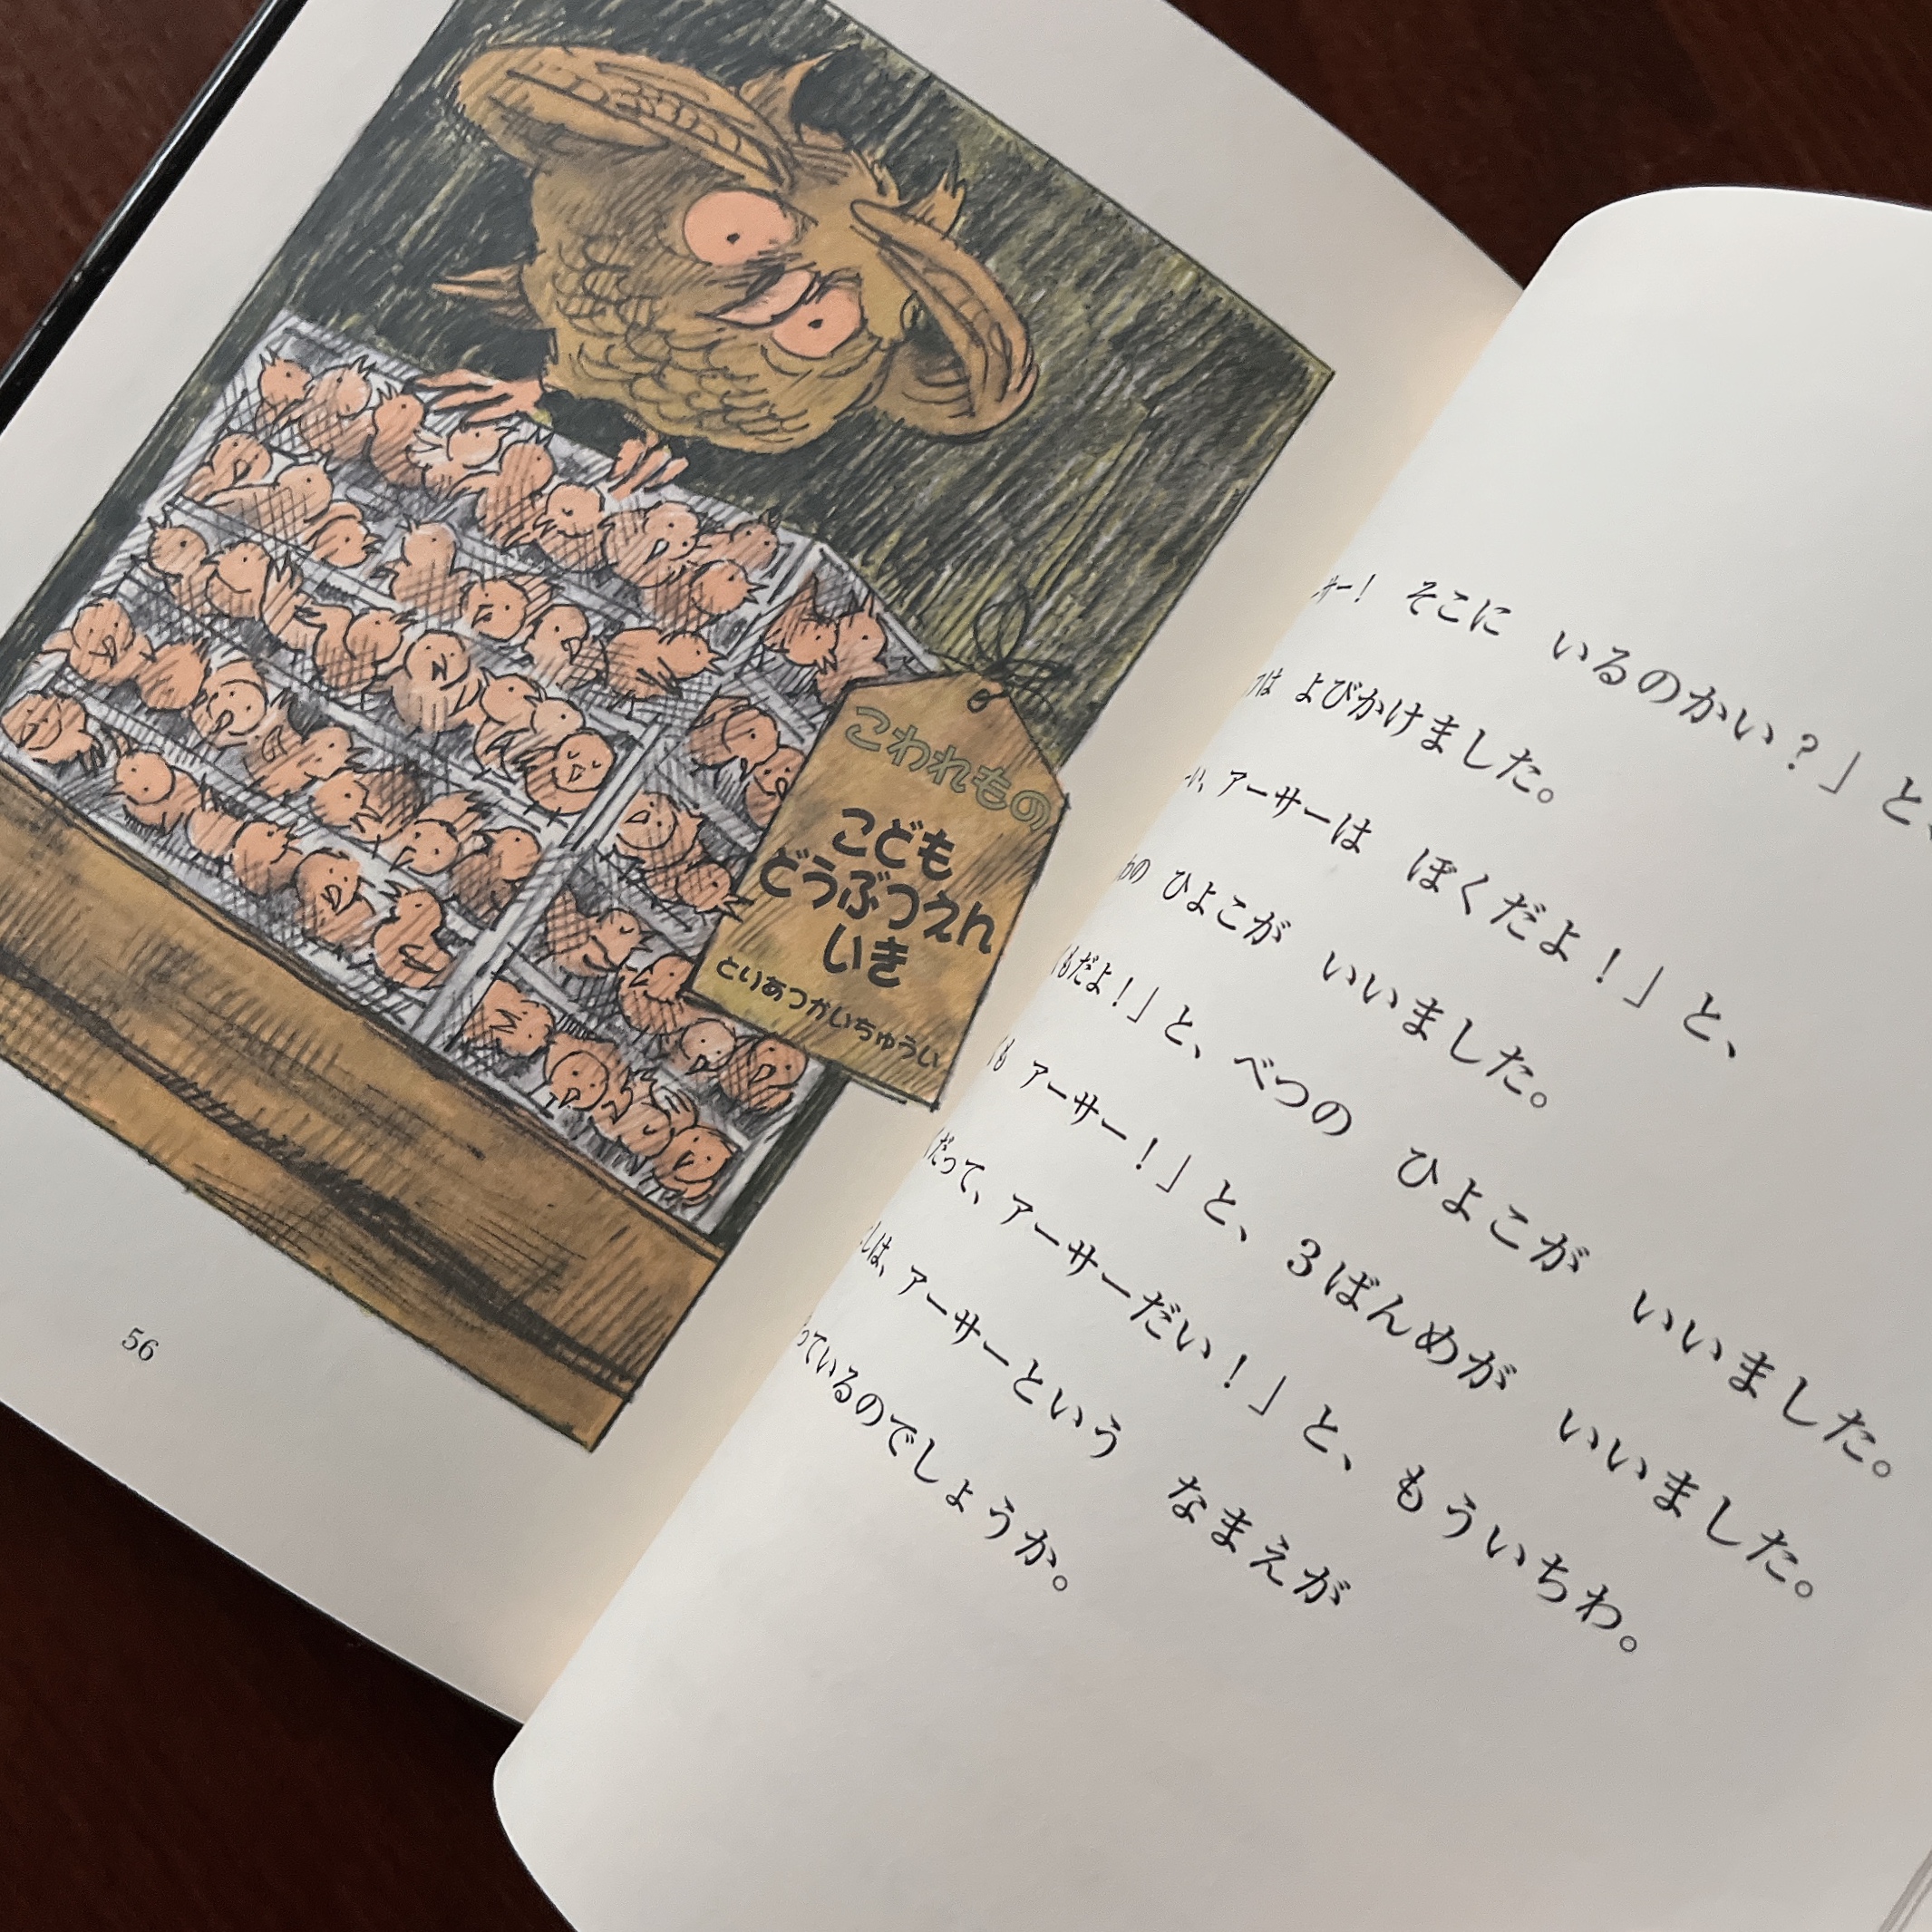 こわれもの
こども
どうぶつえん
いき
とりあつかいちゅうい
56
サー! そこに いるのかい?」と、
は よびかけました。
アーサーは ぼくだよ!」と、
の ひよこが いいました。
だよ!」と、べつの ひよこが いいました。
アーサー!」と、3ばんめが いいました。
だって、アーサーだい!」と、もういちわ。
は、アーサーという なまえが
っているのでしょうか。